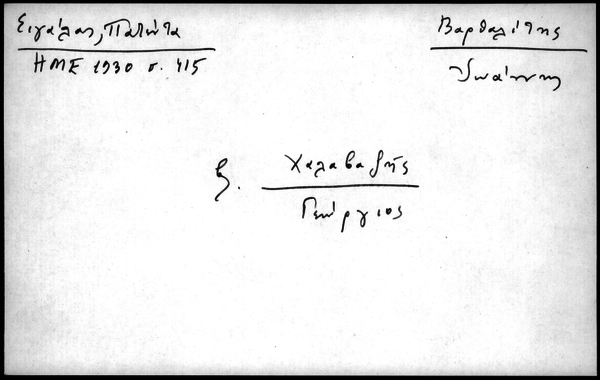 Σιγάλας, Πατέντα
ΗΜΕ 1930 σ. 415
Βαρθαλίτης
Ἰωάννης
β.
Χαλαβαζῆς
Γεώργιος